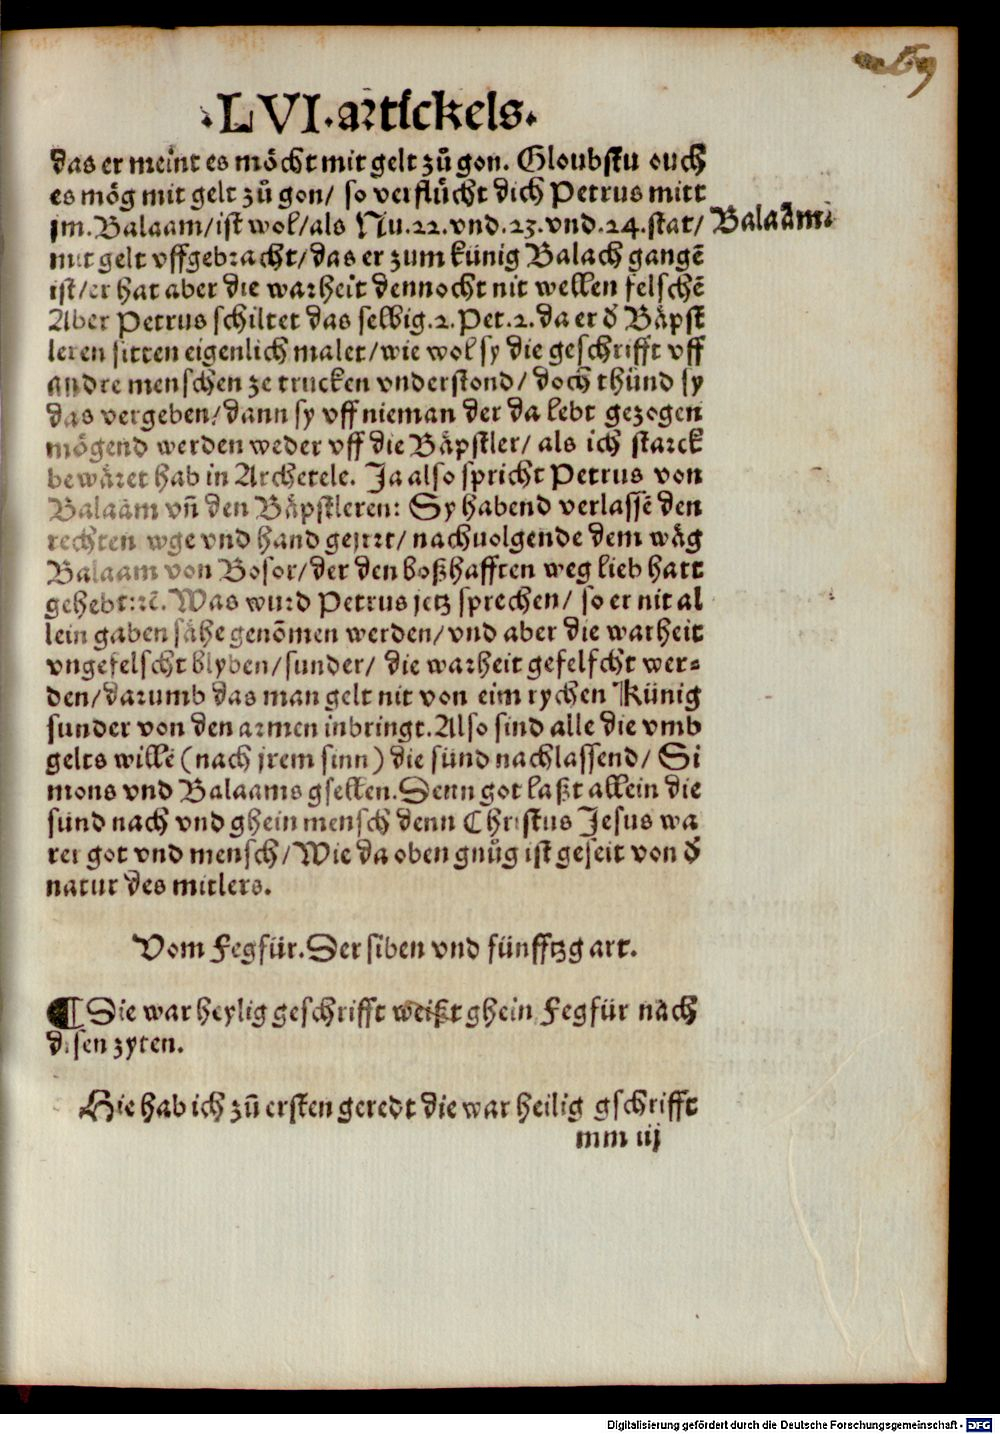 69
·LVI·artickels·
das er meint es möcht mit gelt zů gon. Gloubstu ouch
es mög mit gelt zů gon/ so verflůcht dich Petrus mitt
jm. Balaam/ist wol/als Nu.22.vnd.23.vnd.24.stat/ Balaam.
mit gelt vffgebracht/das er zum künig Balach gangē
ist/er hat aber die warheit dennocht nit wellen felschē
Aber Petrus schiltet das selbig.2.Pet.2.da er ð Bäpst
leren sitten eigenlich malet/wie wol sy die geschrifft vff
andre menschen ze trucken vnderstond/ doch thůnd sy
das vergeben/dann sy vff nieman der da lebt gezogen
mögend werden weder vff die Bäpstler/ als ich starck
bewäret hab in Archetele. Ja also spricht Petrus von
Balaam vñ den Bäpstleren: Sy habend verlassē den
rechten wge vnd hand gejrrt/ nachuolgende dem wäg
Balaam von Bosor/der den boßhafften weg lieb hatt
gehebt:rc̄. Was wurd Petrus jetz sprechen/ so er nit al
lein gaben sähe genōmen werden/vnd aber die warheit
vngefelscht blyben/sunder/ die warheit gefelscht wer⸗
den/darumb das man gelt nit von eim rychen Künig
sunder von den armen inbringt.Also sind alle die vmb
gelts willē (nach jrem sinn) die sünd nachlassend/ Si
mons vnd Balaams gsellen.Denn got laßt allein die
sünd nach vnd ghein mensch denn Christus Jesus wa
rer got vnd mensch/Wie da oben gnůg ist geseit von ð
natur des mitlers.
Vom Fegfür.Der siben vnd fünfftzg art.
¶ Die war heylig geschrifft weißt ghein Fegfür nach
disen zyten.
Hie hab ich zů ersten geredt die war heilig gschrifft
mm iij
Digitalisierung gefördert durch die Deutsche Forschungsgemeinschaft - DFG